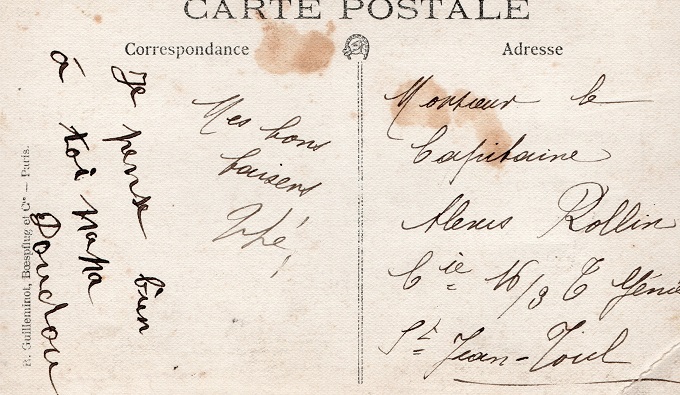 CARTE POSTALE
Correspondance
Adresse
Je pense bien
à toi papa
Doudou
Mes bons
baisers
Monsieur le
Capitaine
Alexis Rollin
Cie 16/3 T Génie
St Jean-Toul
R. Guilleminot, Bœspflug et Cie — Paris.